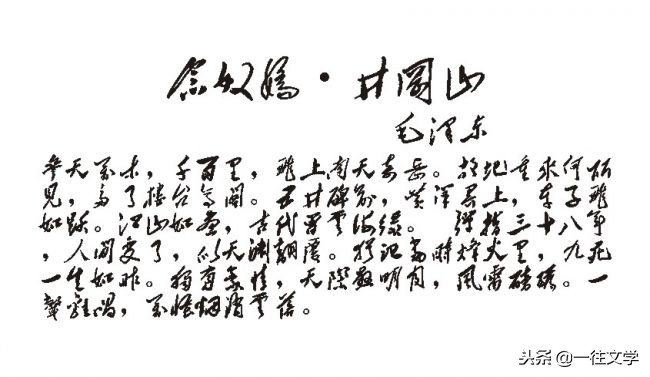 念奴娇·井冈山
毛泽东
参天万木，千百里，飞上南天奇岳。故地重来何所
见，多了楼台亭阁。五井碑前，黄洋界上，车子飞
如跃。江山如画，古代曾云海绿。 弹指三十八年
，人间变了，似天渊翻覆。犹记当时烽火里，九死
一生如昨。独有豪情，天际悬明月，风雷磅礴。一
声鸡唱，万怪烟消云落。
头条 @一往文学